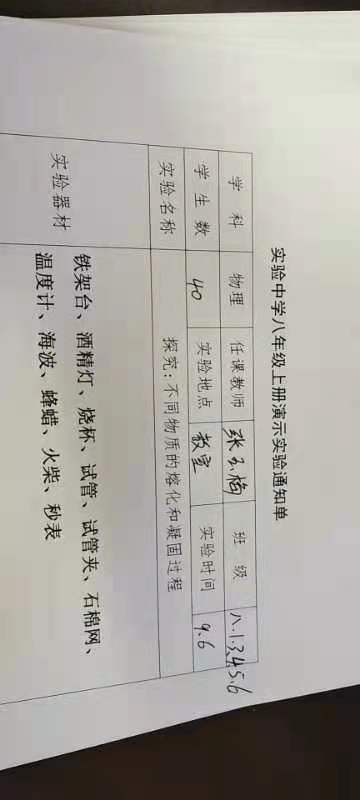 实验中学八年级上册演示实验通知单
学 科 物理 任课教师 张玉梅 班 级 八.1.3.4.5.6
学 生 数 40 实验地点 教室 实验时间 9.6
实验名称 探究:不同物质的熔化和凝固过程
实验器材 铁架台、酒精灯、烧杯、试管、试管夹、石棉网、
温度计、海波、蜂蜡、火柴、秒表